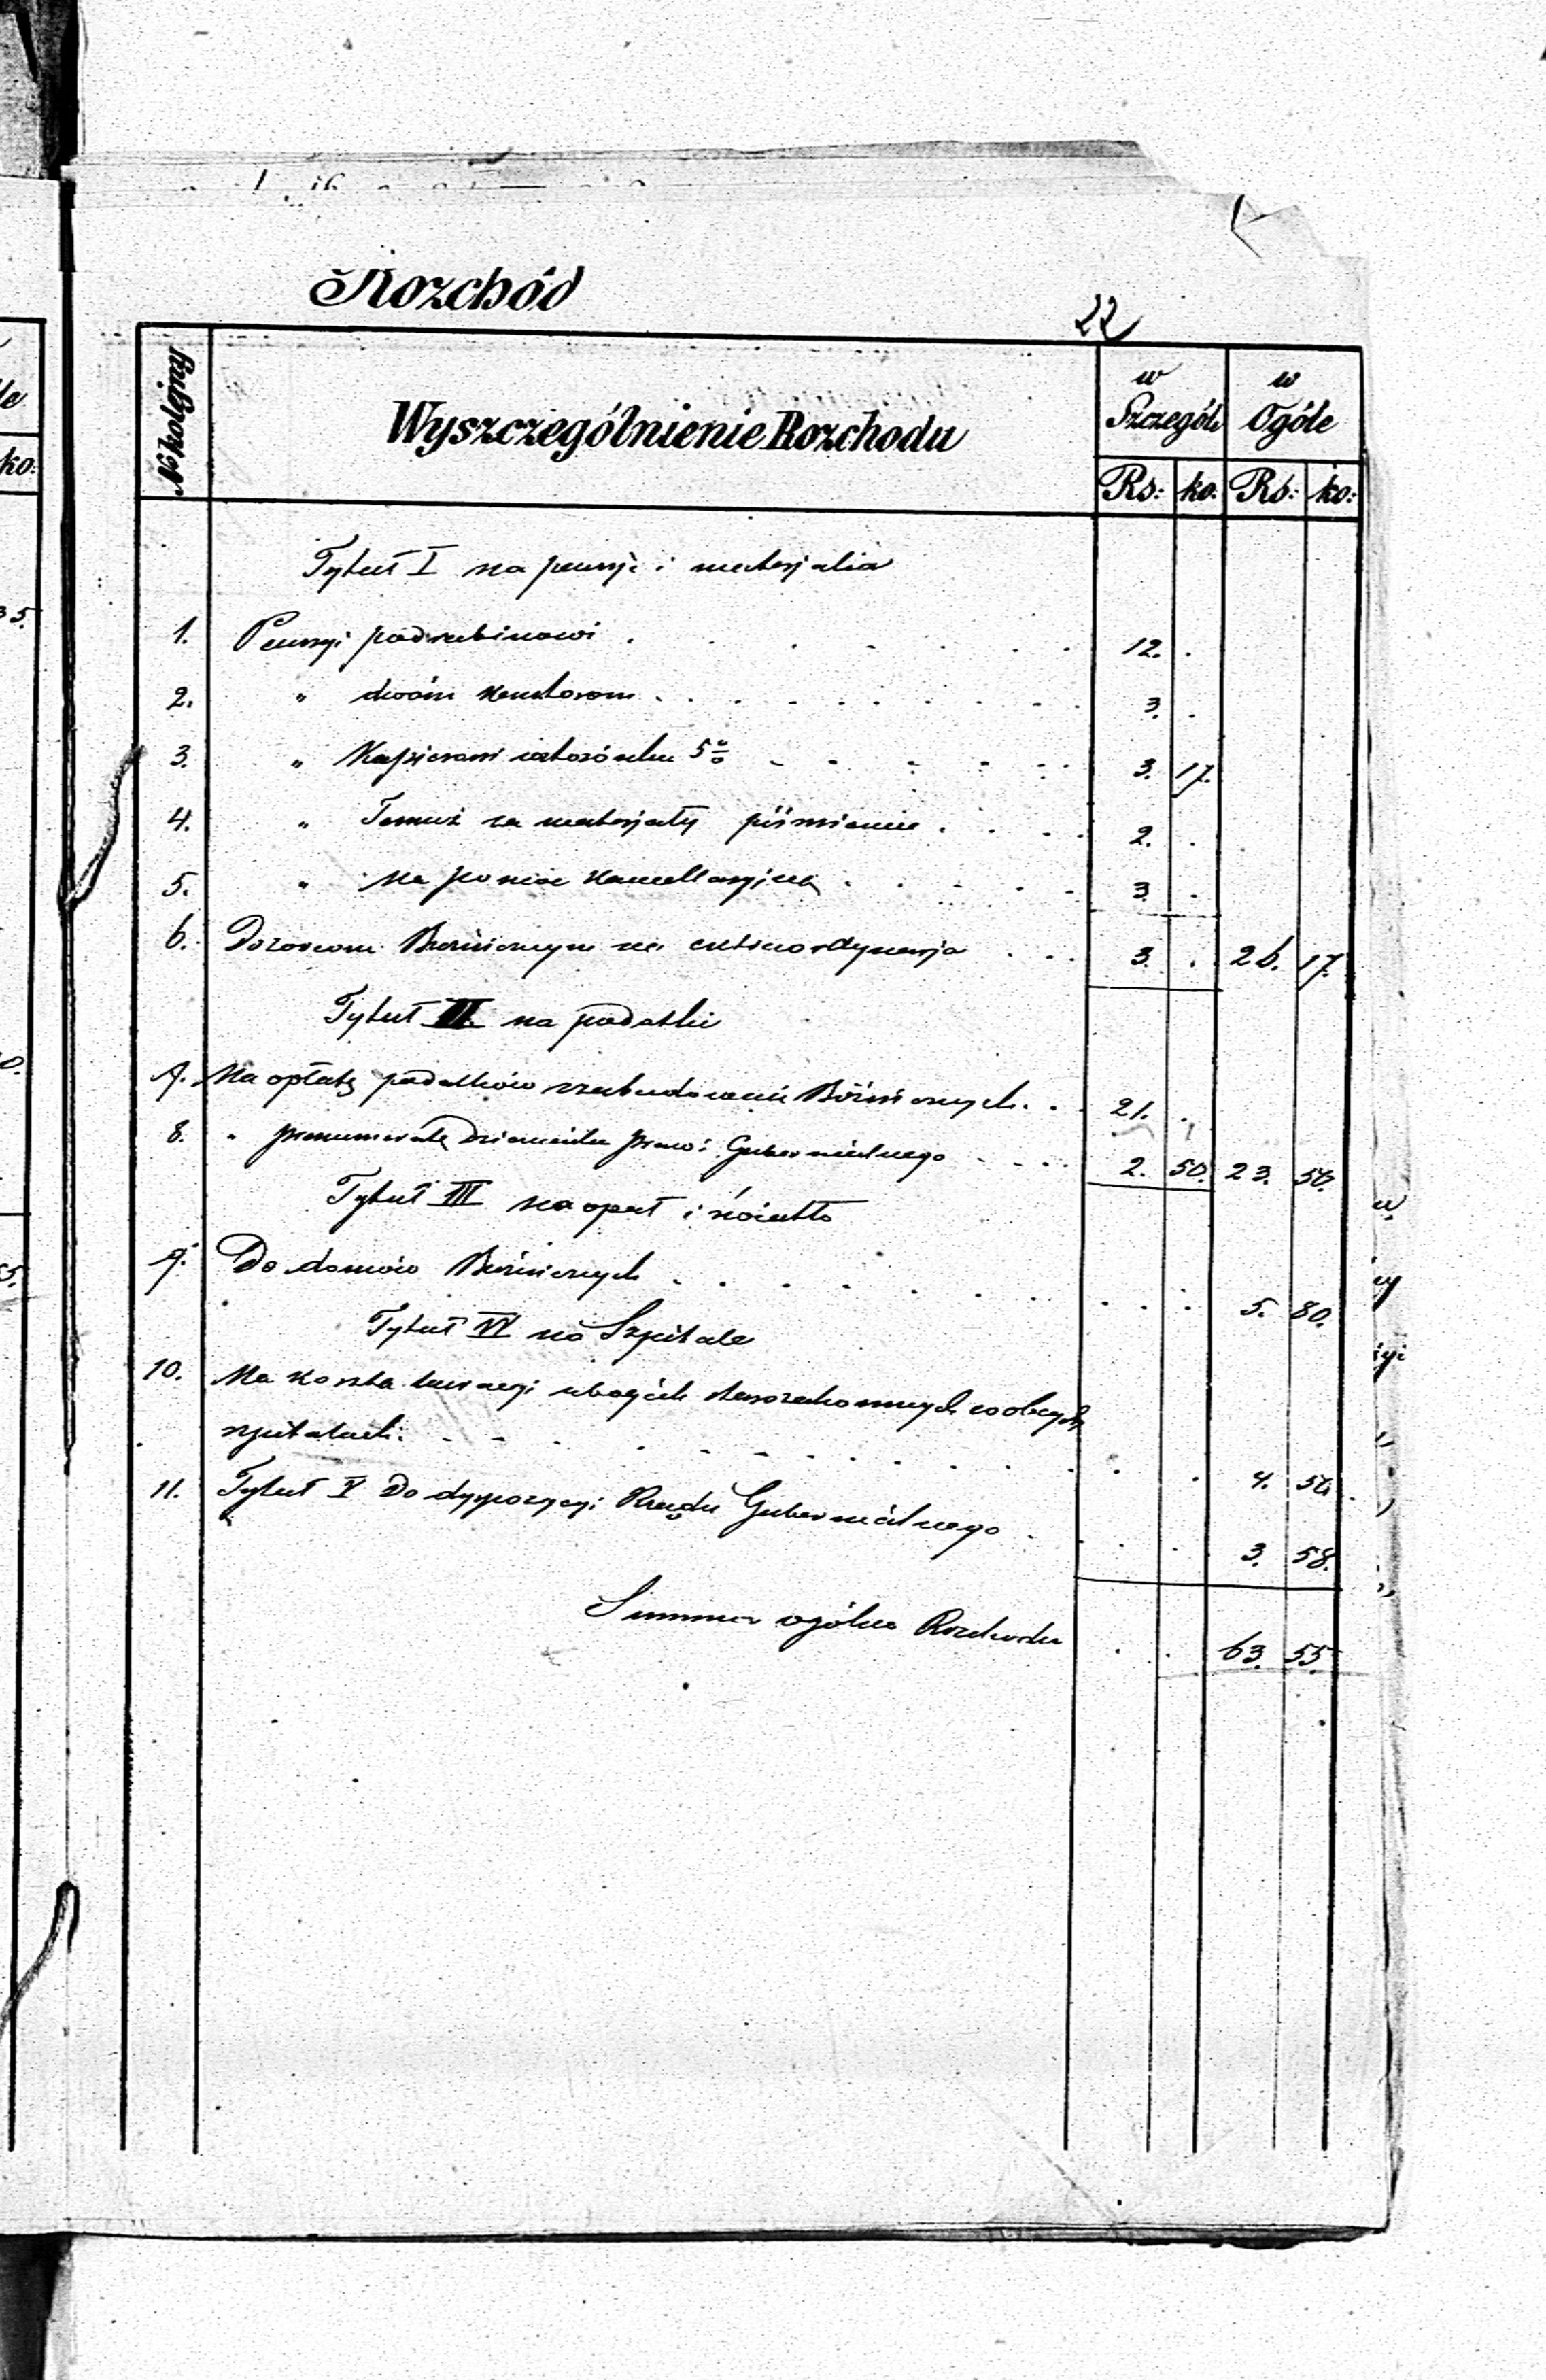 Rozchód
22
№ kolejny
Wyszczególnienie Rozchodu
w Szczególe
w Ogóle
Rs: ko: Rs: ko:
Tytuł I na pensje i materjalia
1. Pensyi podrabinowi . . . . . . 12. .
2. " dwóm kantorom . . . . . . 3. .
3. " Kasjerowi 5% . . . . . 3. 17.
4. " Temuż za materjały piśmienne . . . . 2. .
5. " Na pomoc kancellaryjną . . . . . 3. .
6. Dozorcom Bużniczym na extraordynarja . . . 3. . 26. 17.
Tytuł II. na podatki
7. Na opłatę podatków zabudowań Bóżniczych . . . 21. .
8. " prenumeratę Dziennika praw i Gubernialnego . . . . 2. 50. 23. 50.
Tytuł III na opał i światło
9. Do domów Bużniczych . . . . . . . . . 5. 80.
Tytuł IV na Szpitale
10. Na koszta kuracyi ubogich starozakonnych w obcych
szpitalach . . . . . . . . . . . 4. 50.
11. Tytuł V Do dyspozycyi Rządu Gubernialnego . . . . 3. 58.
Summa ogólna Rozchodu . . 63. 55